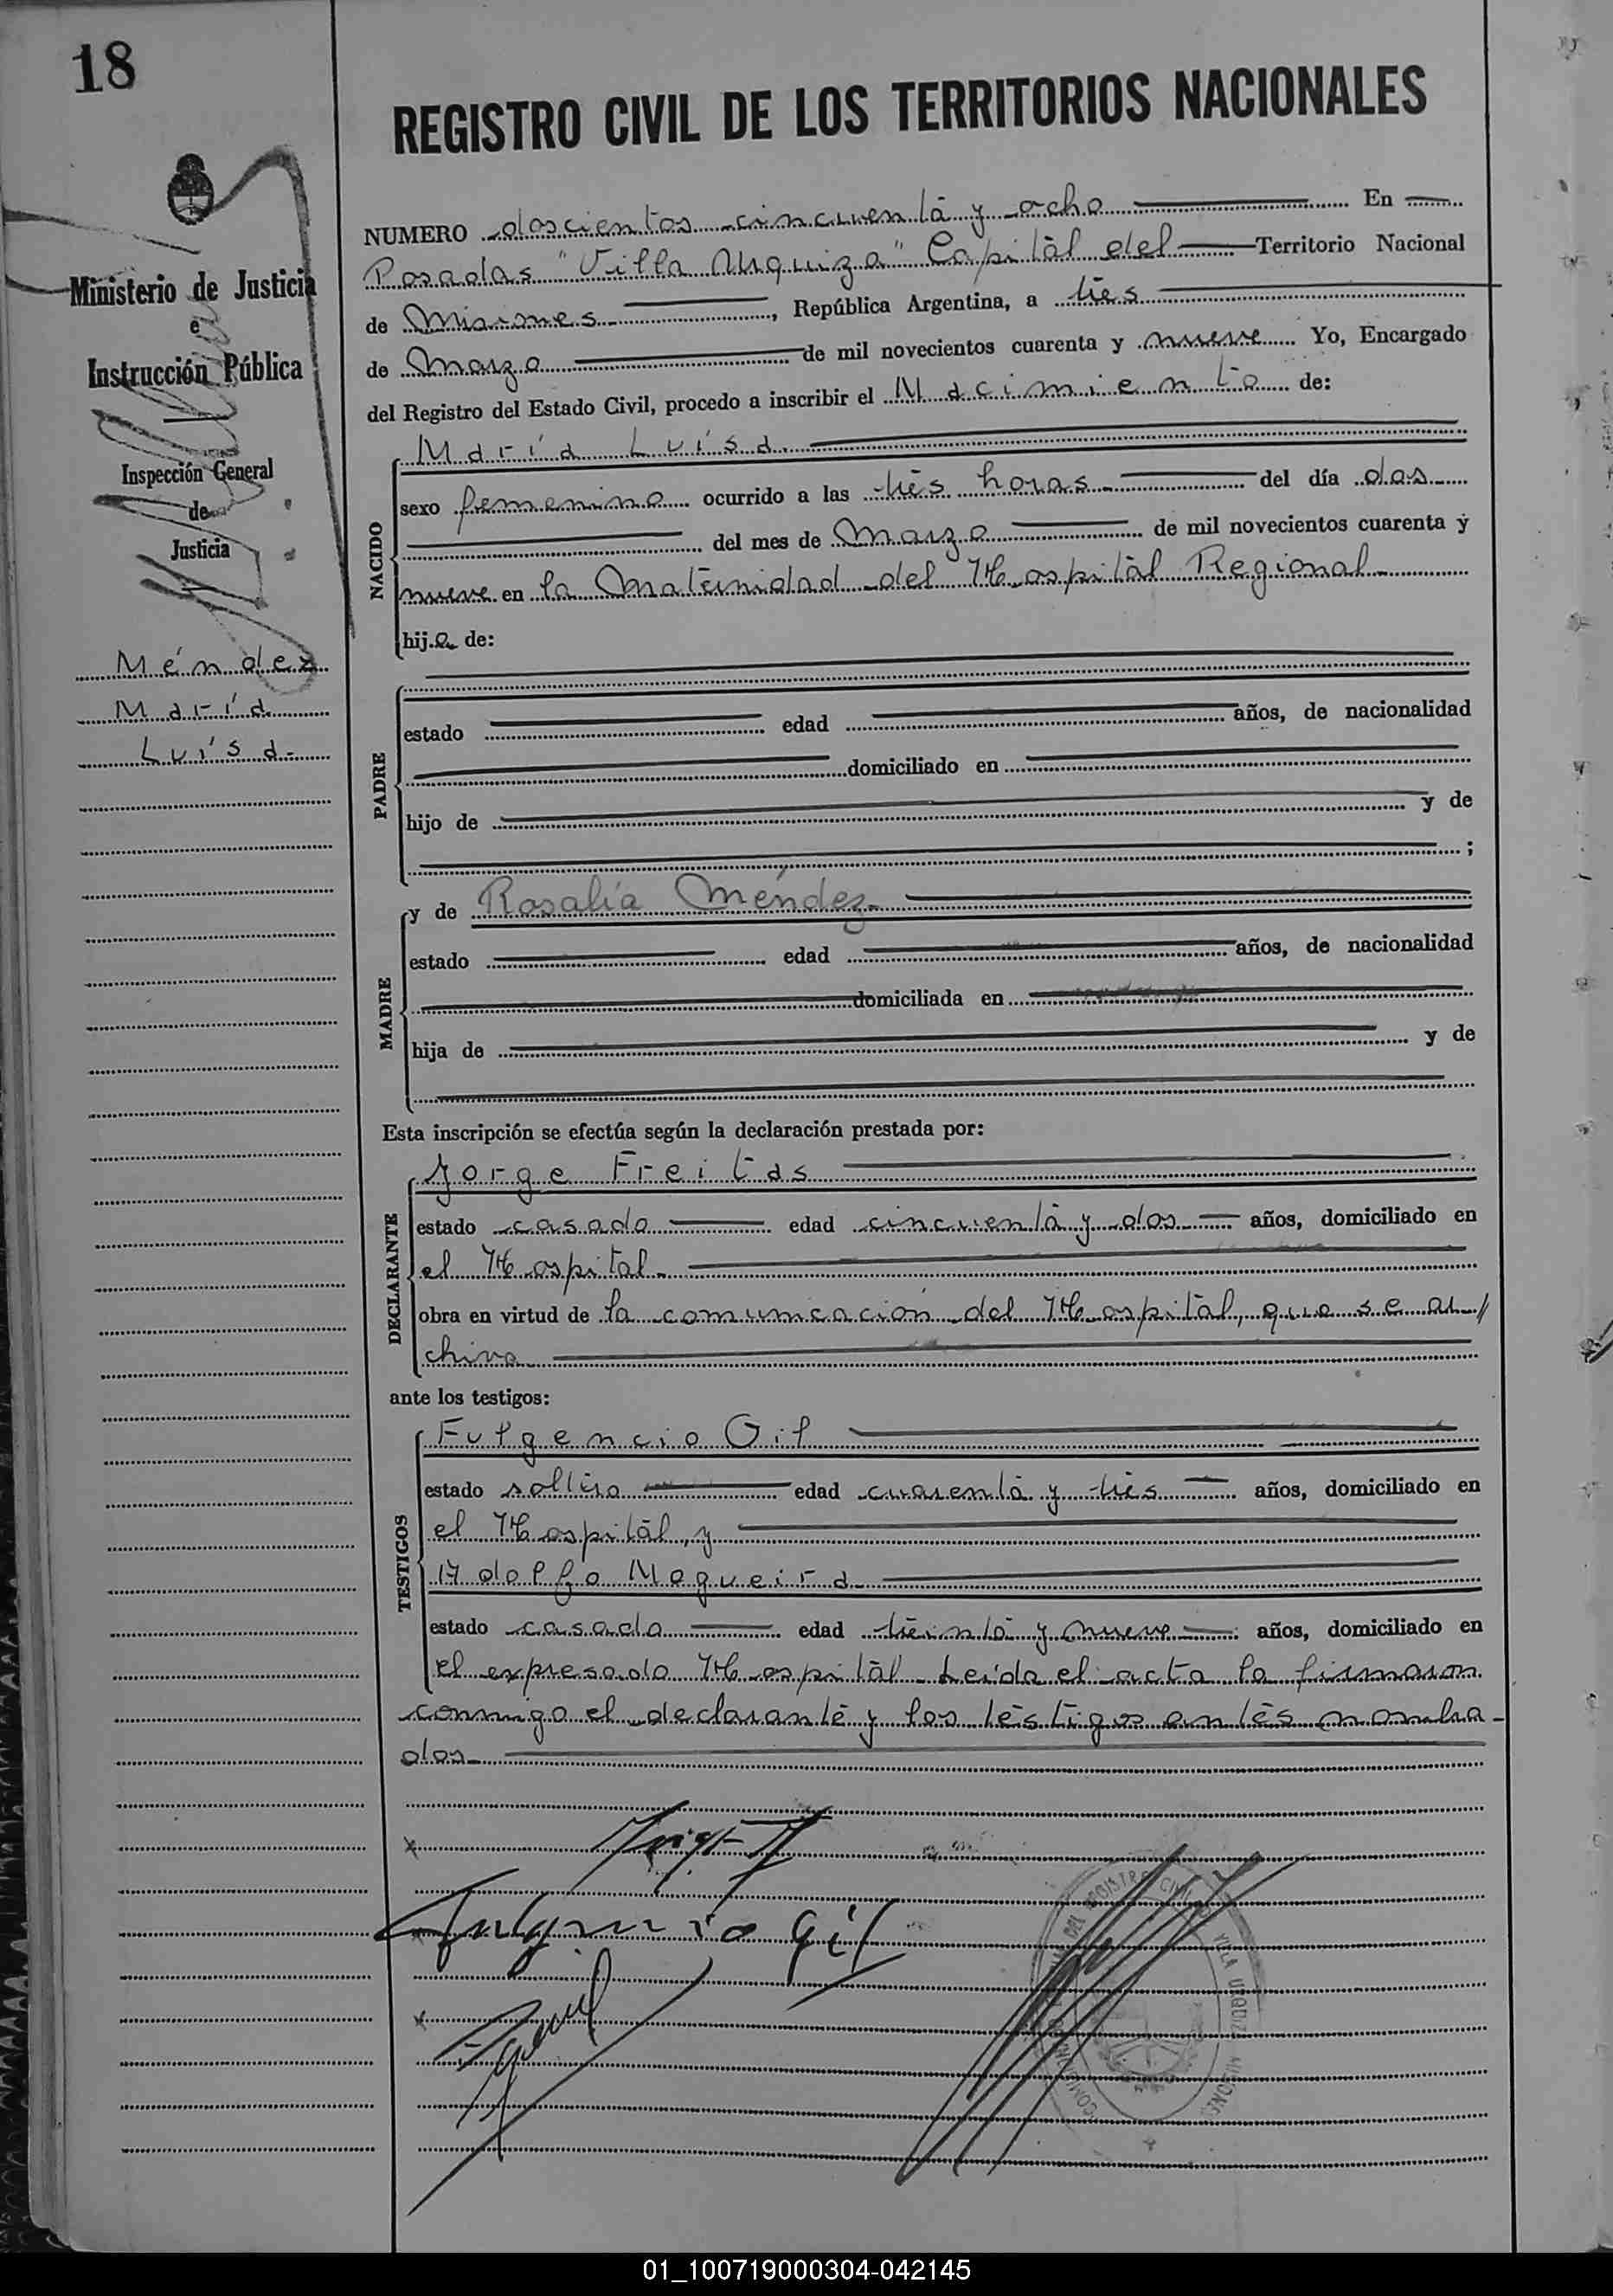 18
REGISTRO CIVIL DE LOS TERRITORIOS NACIONALES
Ministerio de Justicia
e
Instrucción Pública
Inspección General
de
Justicia
Méndez
María
Luísa.
NUMERO doscientos cincuenta y ocho En
Posadas "Villa Urquiza" Capital del Territorio Nacional
de Misiones, República Argentina, a tres
de Marzo de mil novecientos cuarenta y nueve Yo, Encargado
del Registro del Estado Civil, procedo a inscribir el Nacimiento de:
NACIDO
María Luísa.
sexo femenino ocurrido a las tres horas del día dos
del mes de Marzo de mil novecientos cuarenta y
nueve en la Maternidad del Hospital Regional
hija de:
PADRE
estado edad años, de nacionalidad
domiciliado en
hijo de y de
;
MADRE
y de Rosalía Méndez
estado edad años, de nacionalidad
domiciliada en
hija de y de
Esta inscripción se efectúa según la declaración prestada por:
DECLARANTE
Jorge Freitas
estado casado edad cincuenta y dos años, domiciliado en
el Hospital.
obra en virtud de la comunicación del Hospital, que se ar//
chiva
ante los testigos:
TESTIGOS
Fulgencio Gil
estado soltero edad cuarenta y tres años, domiciliado en
el Hospital, y
Adolfo Nogueira
estado casado edad treinta y nueve años, domiciliado en
el expresado Hospital. Leída el acta la firmaron
conmigo el declarante y los testigos antes nombra-
dos.
Fulgencio Gil
REGISTRO CIVIL
VILLA URQUIZA
MISIONES
01_100719000304-042145